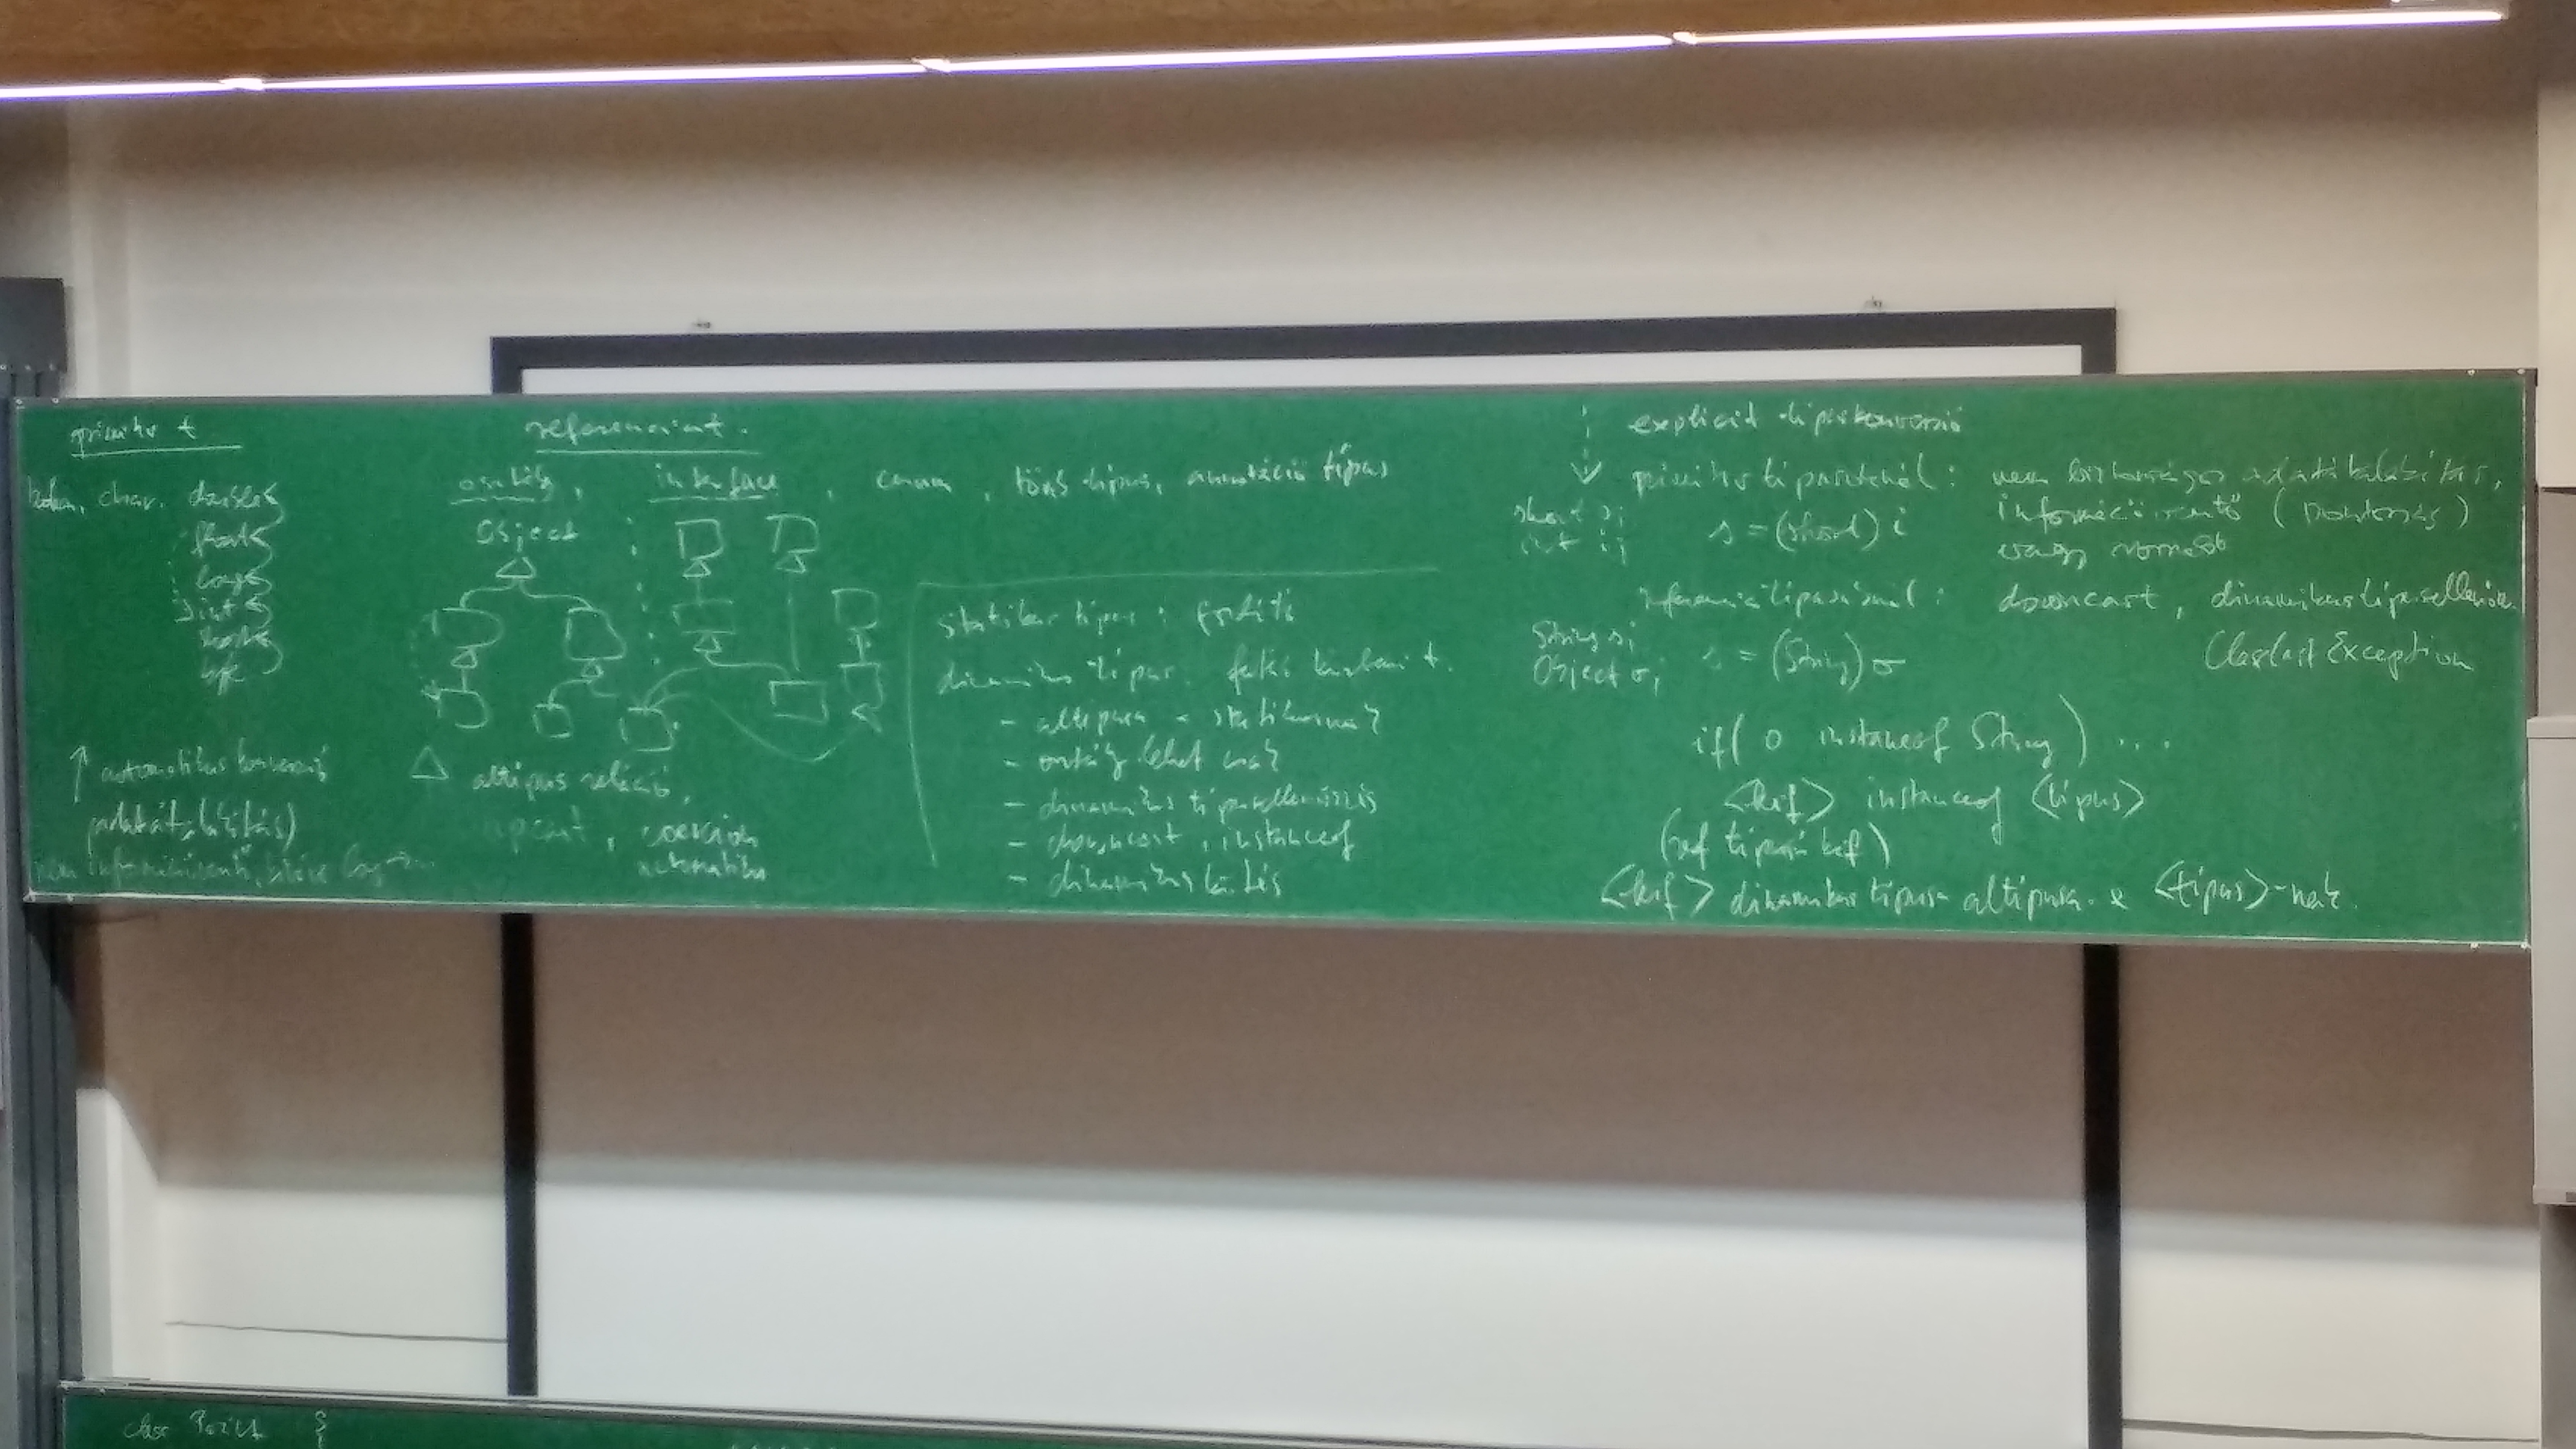 primitív t
boolean, char, double
float
long
int
short
byte
↑ automatikus konverzió
referencia t.
osztály, interface, enum, tömb típus, annotáció típus
Object
△ altípus reláció,
upcast, coercion
automatikus
statikus típus: fordító
dinamikus típus: futás közbeni t.
- altípusa a statikusnak
- osztály lehet csak
- dinamikus típusellenőrzés
- downcast, instanceof
- dinamikus kötés
explicit típuskonverzió
primitív típusoknál: nem biztonságos adatátalakítás,
short s;
int i;
s = (short) i
információvesztő
vagy
referencia típusúnál: downcast, dinamikus típusellenőrz.
String s;
Object o;
s = (String) o
ClassCastException
if( o instanceof String ) ...
<kif> instanceof <típus>
(ref típusú kif)
<kif> dinamikus típusa altípusa-e <típus>-nak.
class Point {